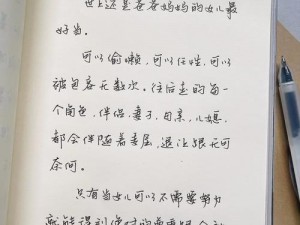 世上还是爸爸妈妈的女儿最
好当。
可以偷懒，可以任性，可以
被包容无数次。往后走的每一
个角色，伴侣，妻子，母亲，儿媳，
都会伴随着委屈，退让跟无可
奈何。
只有当女儿可以不需要努力
就能得到